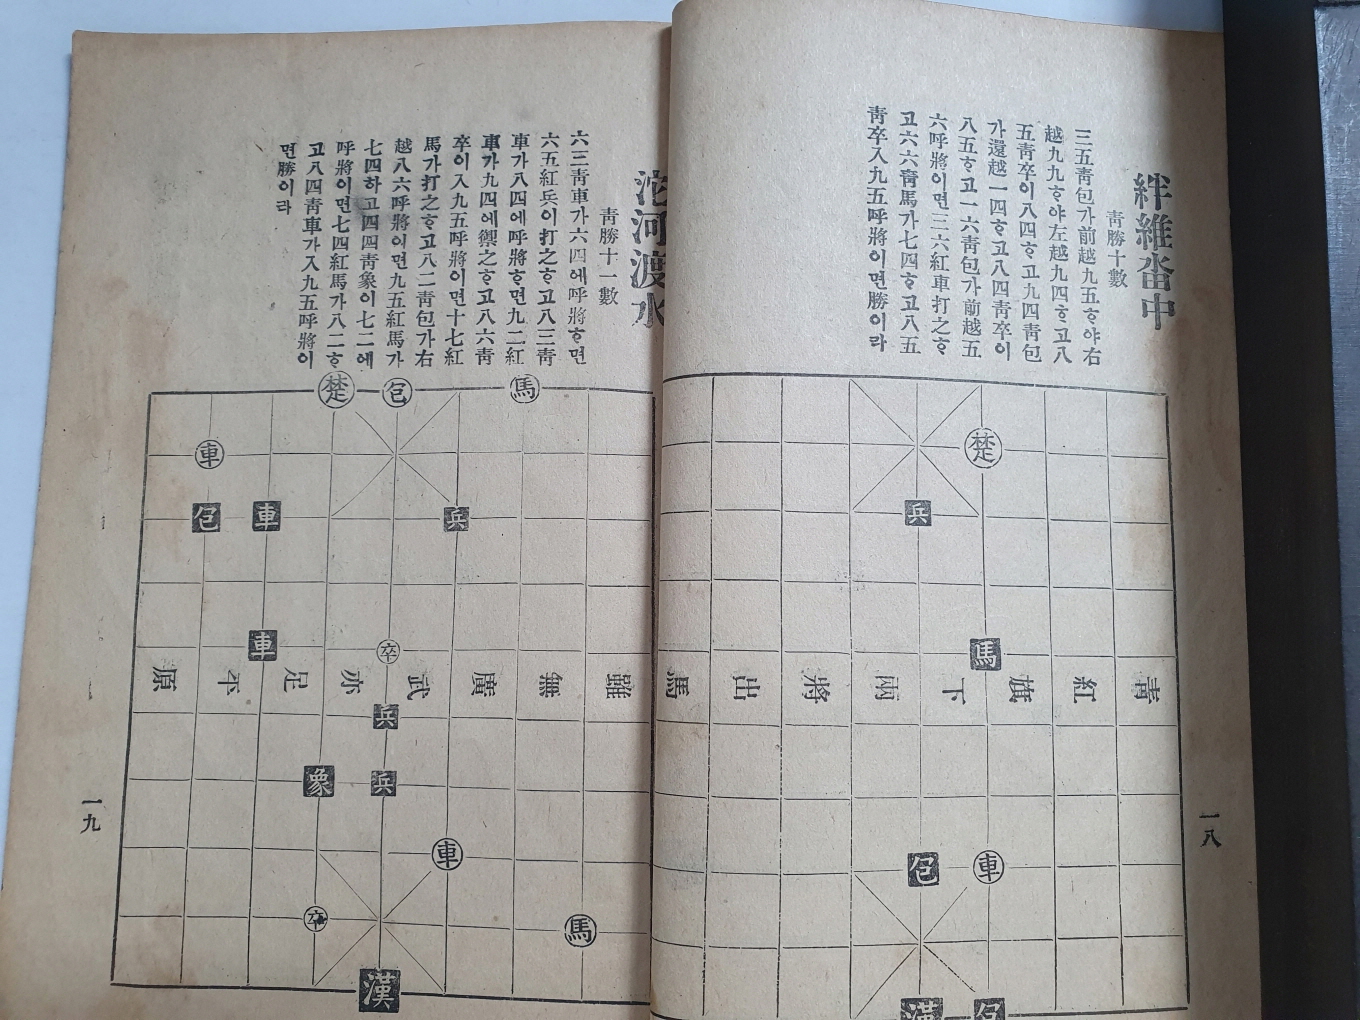 絆維畓中
靑勝十數
三五靑包가前越九五ᄒᆞ야右
越九九ᄒᆞ야左越九四ᄒᆞ고八
五靑卒이八四ᄒᆞ고九四靑包
가還越一四ᄒᆞ고八四靑卒이
八五ᄒᆞ고一六靑包가前越五
六呼將이면三六紅車打之ᄒᆞ
고六六靑馬가七四ᄒᆞ고八五
靑卒入九五呼將이면勝이라
楚
兵
馬
靑紅旗下兩將出馬
包
車
漢
包
一八
沱河渡水
靑勝十一數
六三靑車가六四에呼將ᄒᆞ면
六五紅兵이打之ᄒᆞ고八三靑
車가八四에呼將ᄒᆞ면九二紅
車가九四에禦之ᄒᆞ고八六靑
卒이入九五呼將이면十七紅
馬가打之ᄒᆞ고八二靑包가右
越八六呼將이면九五紅馬가
七四하고四四靑象이七二에
呼將이면七四紅馬가八二ᄒᆞ
고八四靑車가入九五呼將이
면勝이라
楚
包
馬
車
包
車
兵
車
卒
雖無廣武亦足平原
兵
象
兵
車
卒
馬
漢
一九